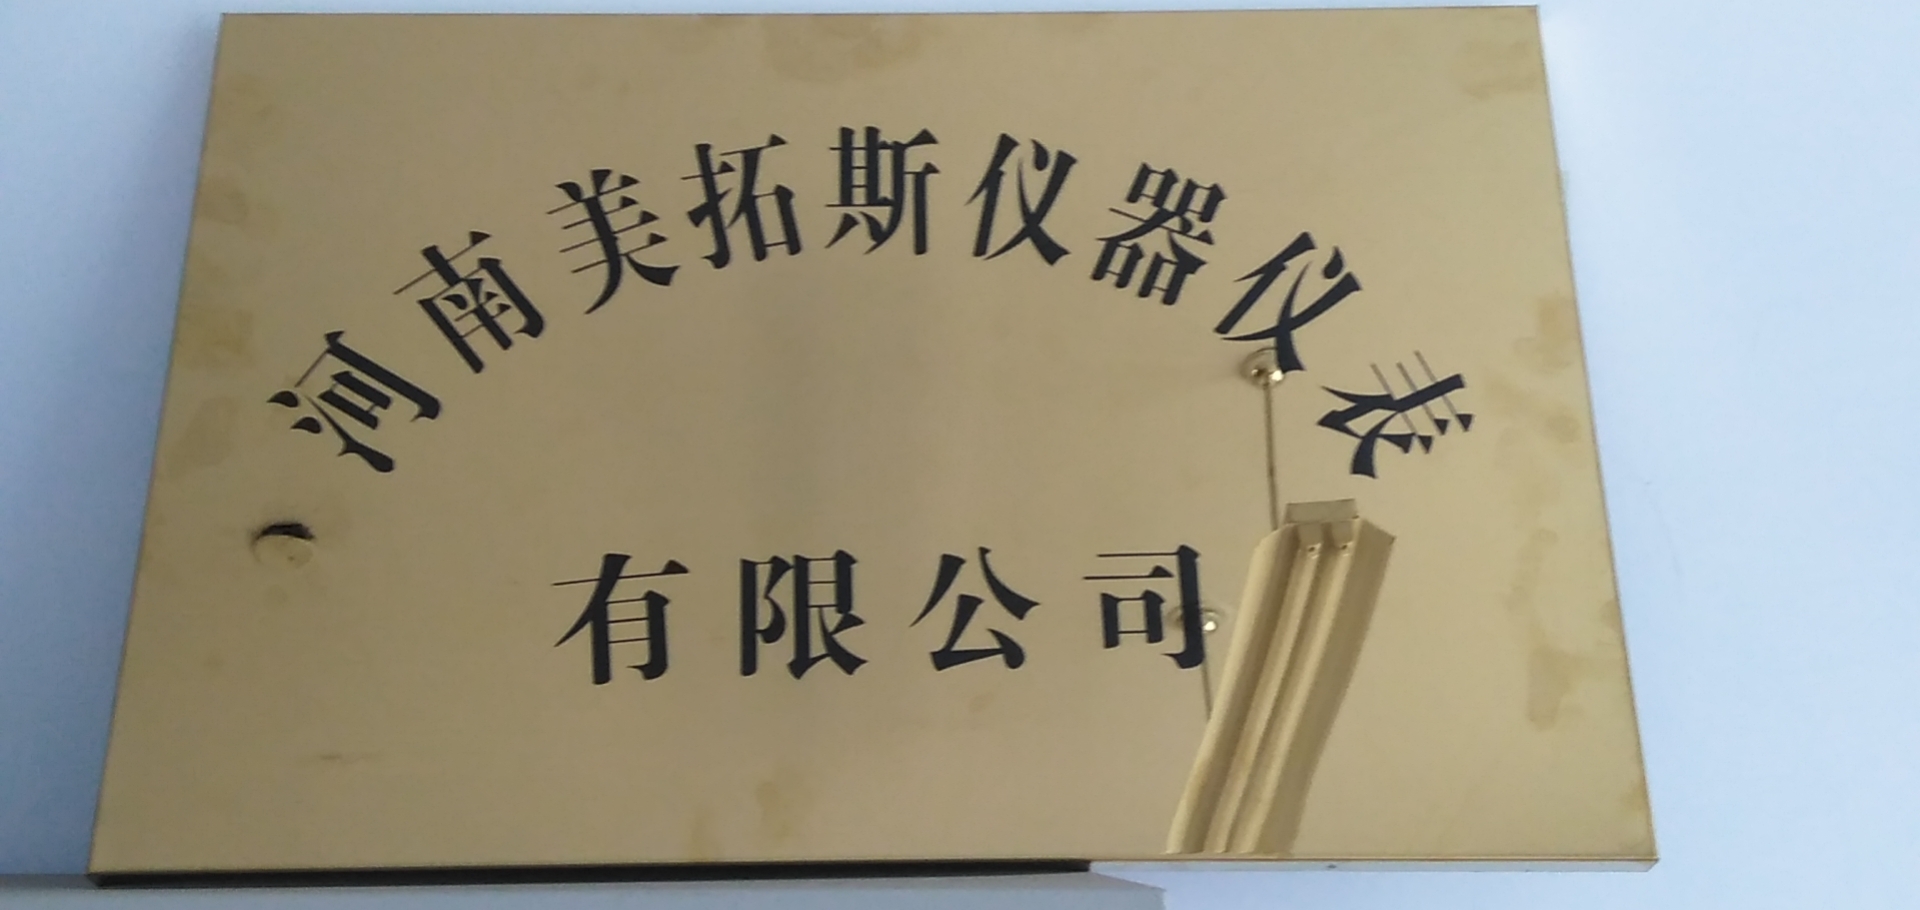 河南美拓斯仪器仪表
有限公司